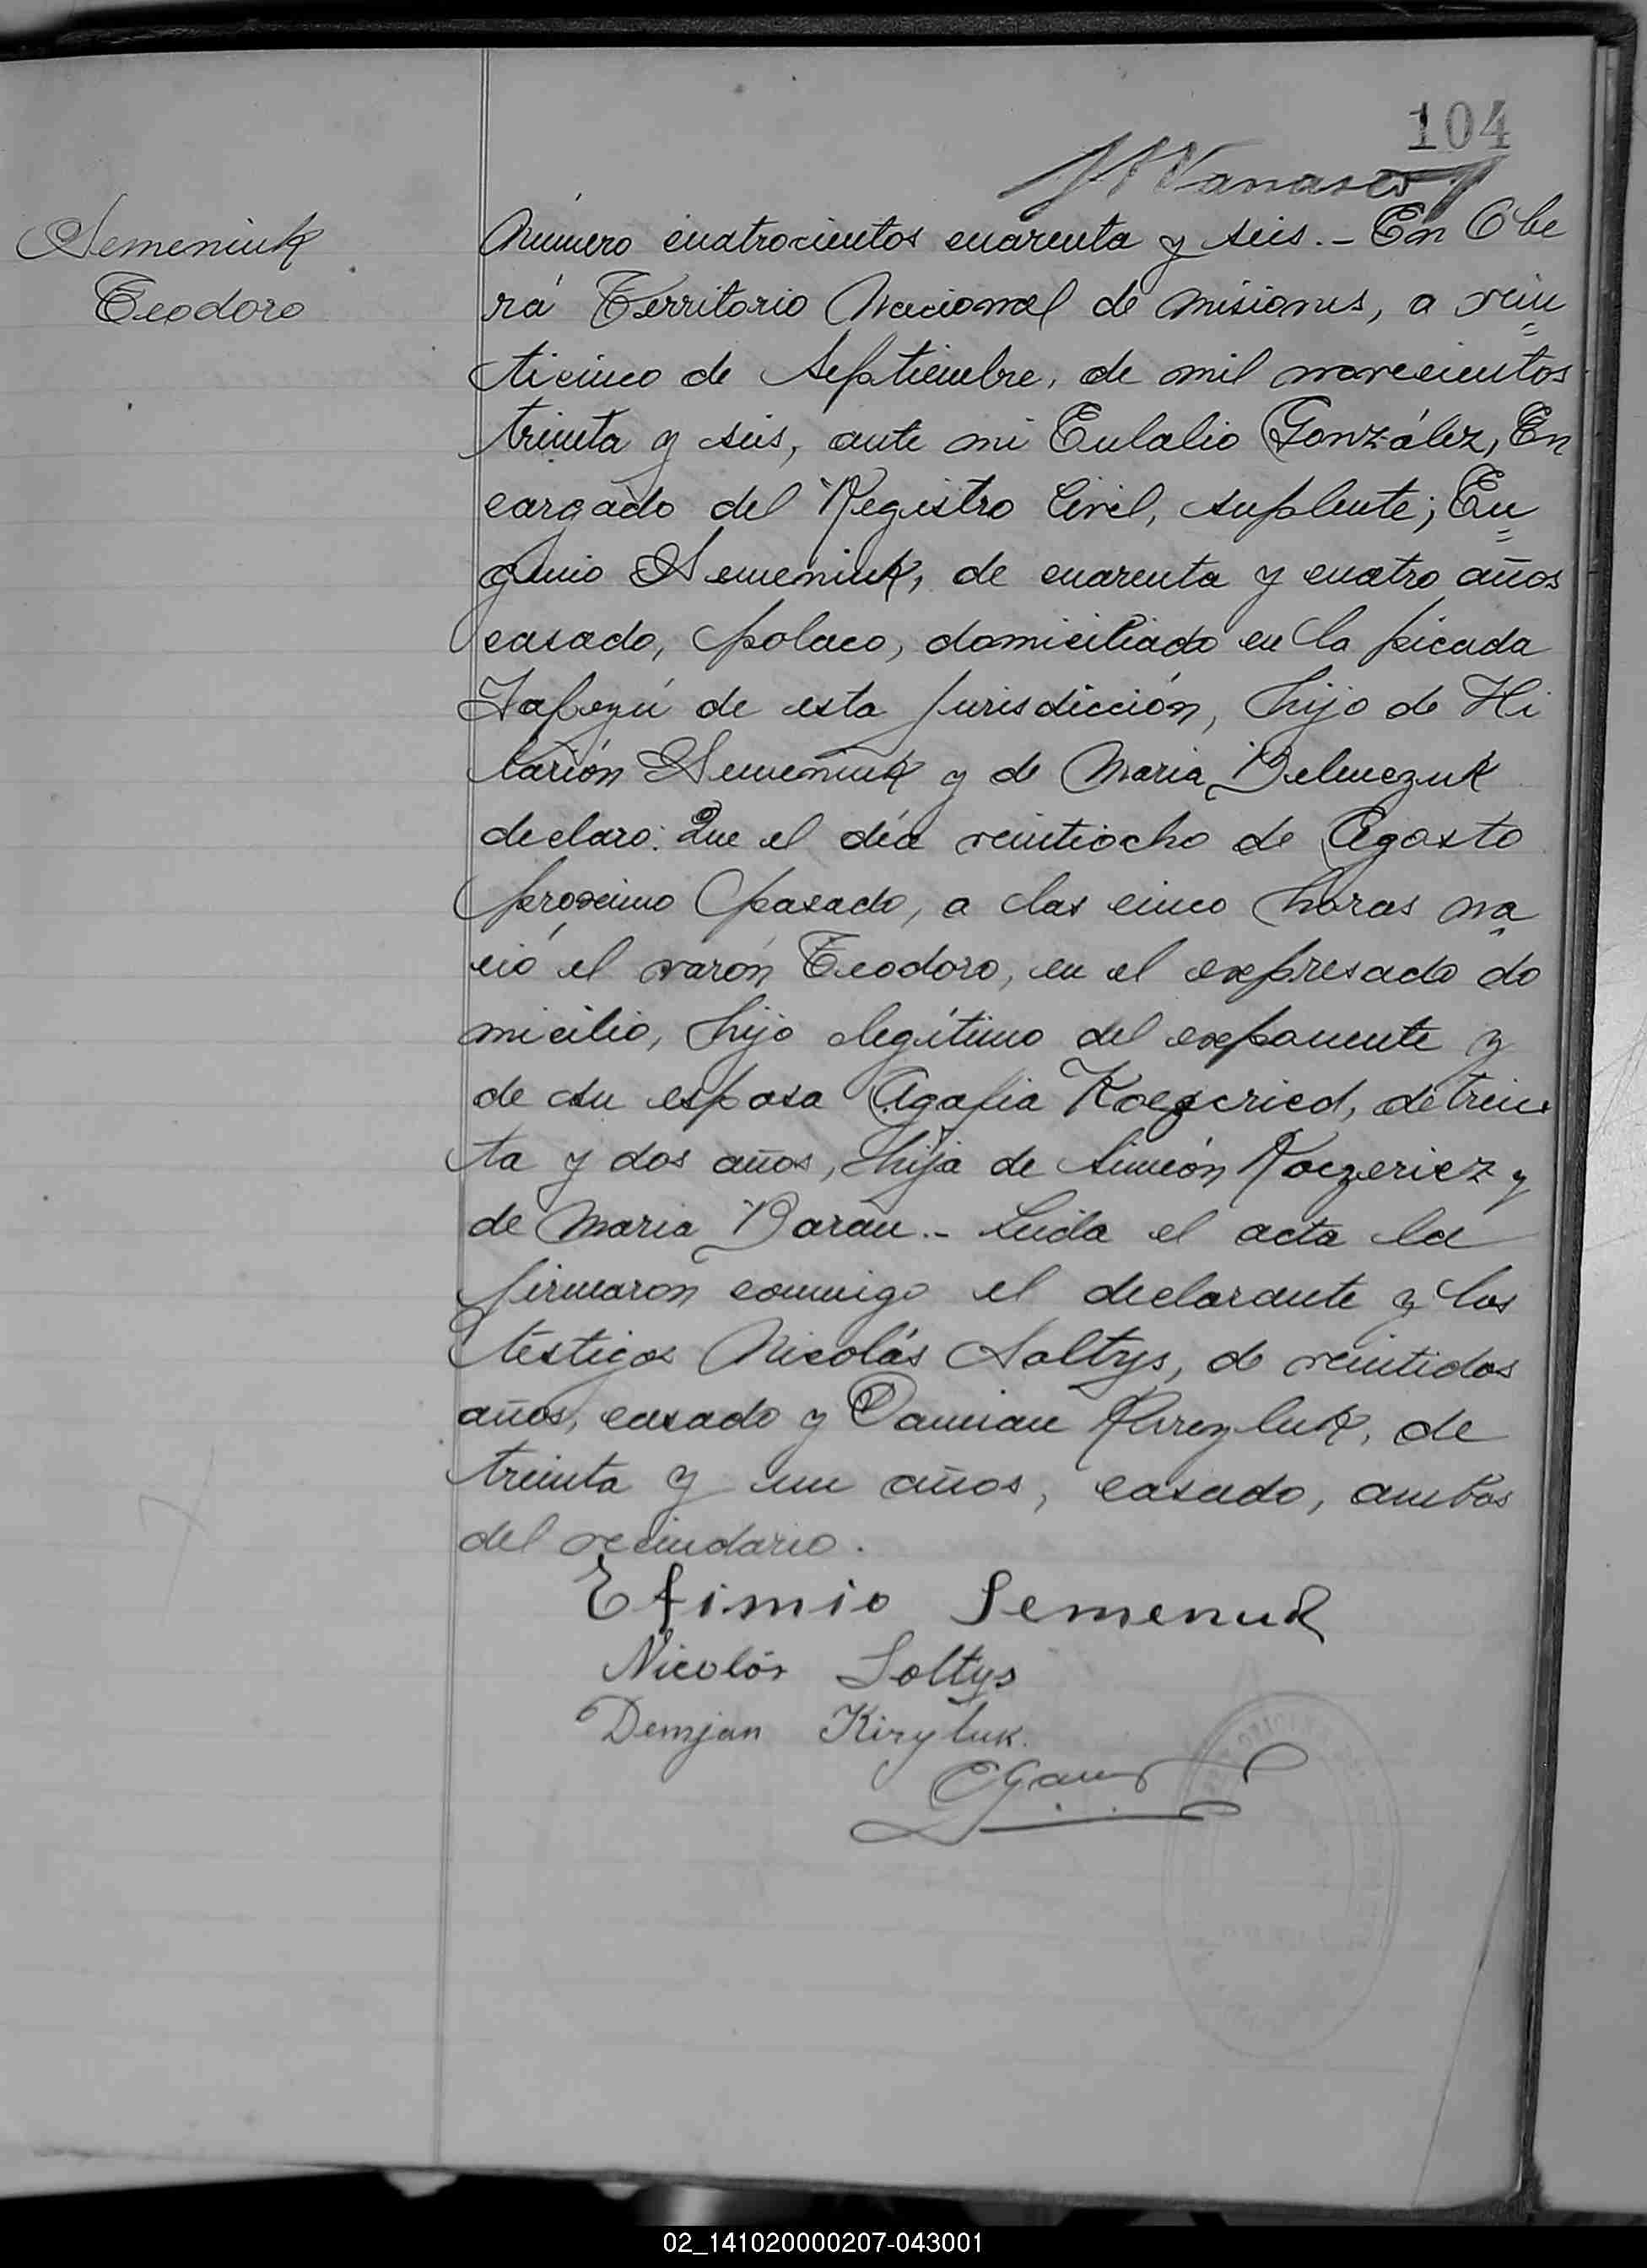 104
Semeniuk
Teodoro
Número cuatrocientos cuarenta y seis.- En Obe
rá Territorio Nacional de Misiones, a vein
ticinco de Septiembre, de mil novecientos
treinta y seis, ante mi Eulalio González, En
cargado del Registro Civil, suplente; Eu
genio Semeniuk, de cuarenta y cuatro años
casado, polaco, domiciliado en la picada
Yapeyú de esta jurisdicción, hijo de Hi
larión Semeniuk y de Maria
declaro: Que el día veintiocho de Agosto
próximo pasado, a las cinco horas na
ció el varón Teodoro, en el expresado do
micilio, hijo legítimo del exponente y
de su esposa Agafia de trein
ta y dos años, hija de Simeón y
de Maria Baran.- Leida el acta la
firmaron conmigo el declarante y los
testigos Nicolás Soltys, de veintidos
años, casado y Damian de
treinta y un años, casado, ambos
del vecindario.
Efimio Semenuk
Nicolás Soltys
Demjan Kiryluk.
02_141020000207-043001